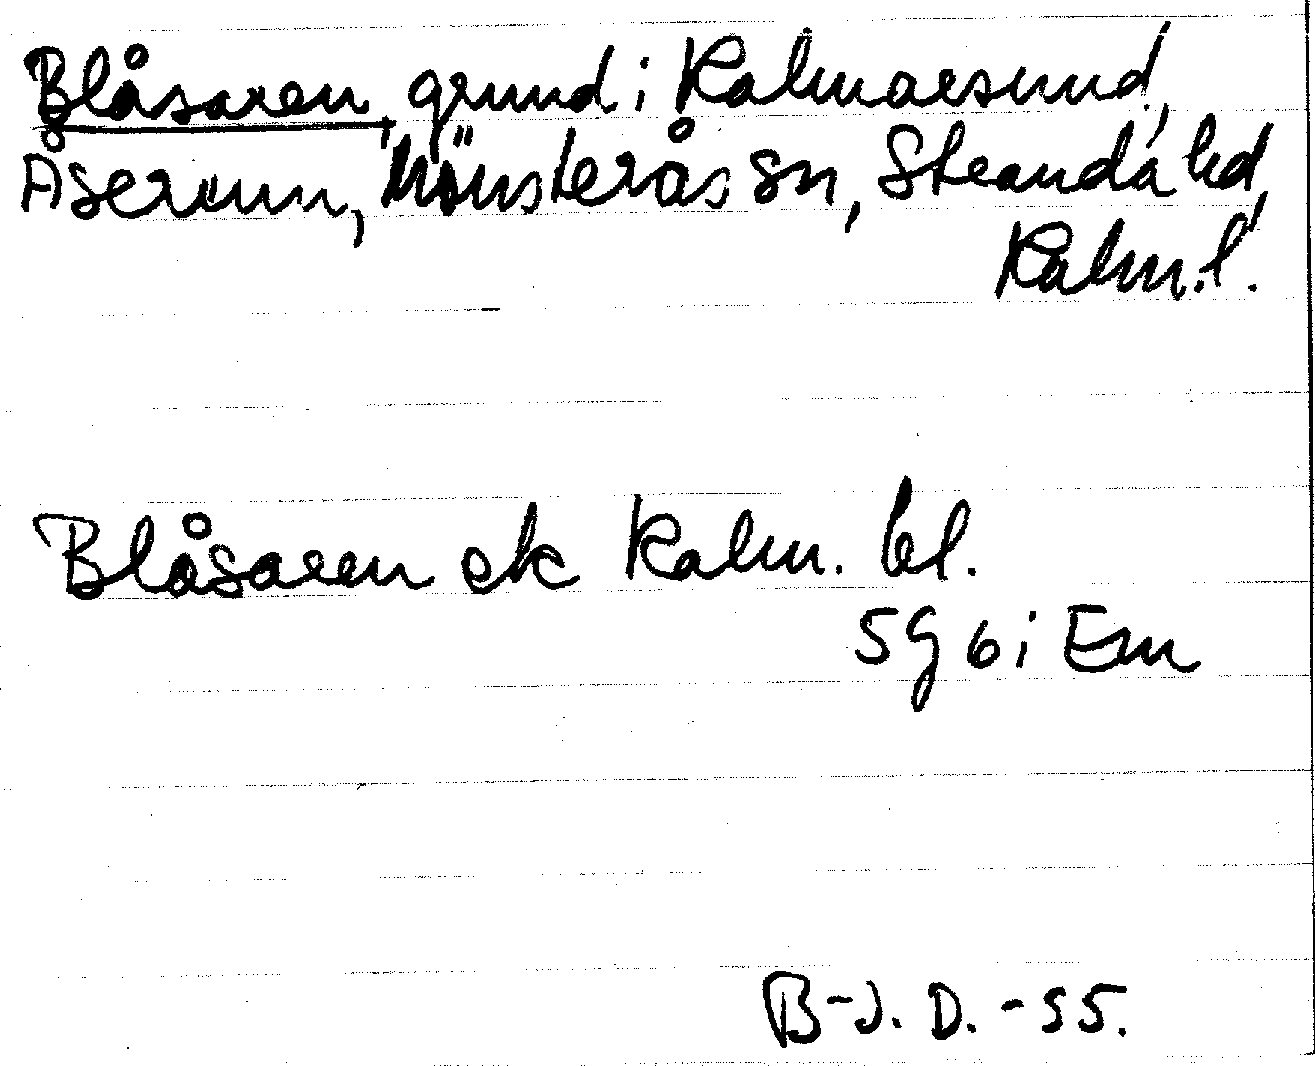 Blåsaren, grund i Kalmarsund,
Åserum, Mönsterås sn, Stranda hd,
Kalm. l.
Blåsaren ek Kalm. bl.
5G 6 i Em
B-J. D. -55.